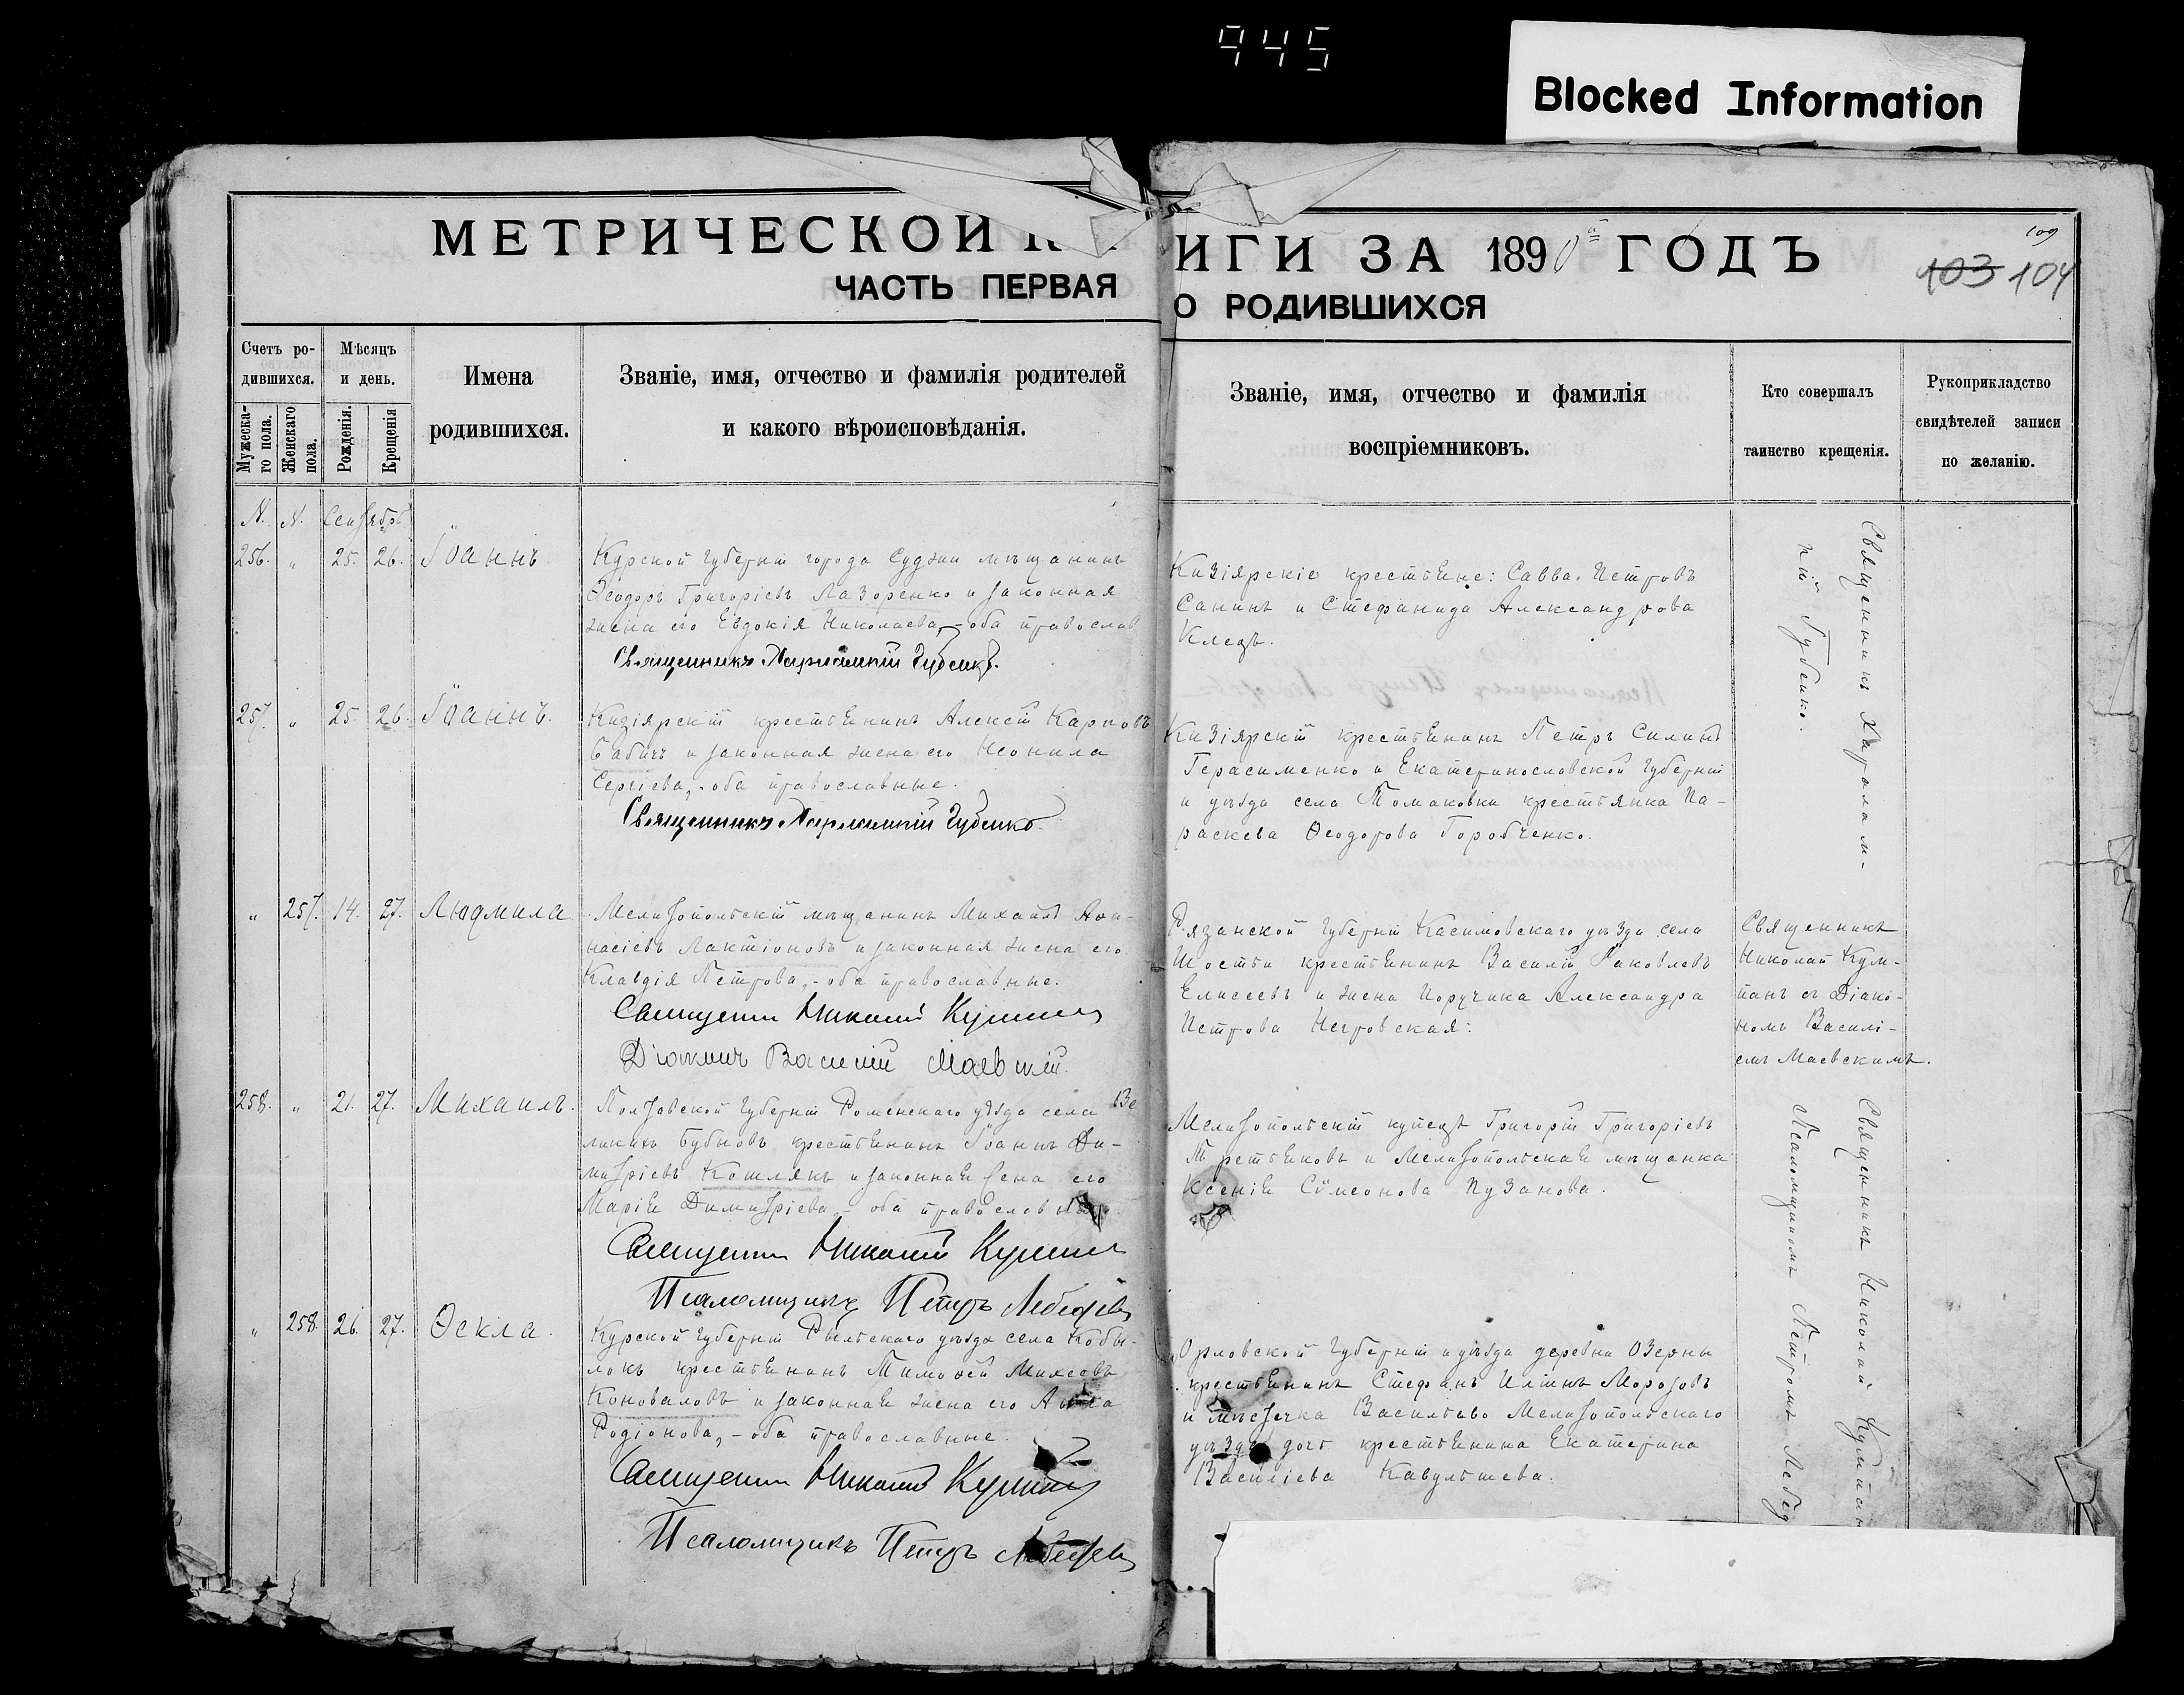 945
Blocked Information
МЕТРИЧЕСКОЙ К
ЧАСТЬ ПЕРВАЯ
Счетъ ро-
дившихся.
Мужеска-
го пола.
Женскаго
пола.
Мѣсяцъ
и день.
Рожденія.
Крещенія
Имена
родившихся.
Званіе, имя, отчество и фамилія родителей
и какого вѣроисповѣданія.
N. N. Сентябрь
256. " 25. 26. Іоаннъ.
Курской губерніи города Суджи мѣщанинъ
Ѳеодоръ Григоріевъ Лазоренко и законная
жена его Евдокія Николаева, - оба православ
Священникъ Харлампій Губенко.
257. " 25. 26. Іоаннъ.
Кизіярскій крестьянинъ Алексій Карповъ
Бабичъ и законная жена его Неонила
Сергіева, - оба православные.
Священникъ Харлампій Губенко.
" 257. 14. 27. Людмила
Мелитопольскій мѣщанинъ Михаилъ Аѳа-
насіевъ Лактіоновъ и законная жена его
Клавдія Петрова, - оба православные.
Священник Николай Кулпан
Діаконъ Василій Маевскій.
258. " 21. 27. Михаилъ.
Полтавской губерніи Роменскаго уѣзда села Ве
ликихъ Бубновъ крестьянинъ Іоаннъ Ди-
митріевъ Кошлякъ и законная жена его
Марія Димитріева, - оба православные
Священник Николай Кулпан
Псаломщикъ Петръ Лебедев
" 258. 26. 27. Ѳекла.
Курской губерніи Рыльскаго уѣзда села Кобы-
локъ крестьянинъ Тимоѳей Михеевъ
Коноваловъ и законная жена его Анна
Родіонова, - оба православные.
Священник Николай Кулпан
Псаломщикъ Петръ Лебедев
ИГИ ЗА 1890й ГОДЪ
О РОДИВШИХСЯ
109
103 104
Званіе, имя, отчество и фамилія
воспріемниковъ.
Кто совершалъ
таинство крещенія.
Рукоприкладство
свидѣтелей записи
по желанію.
Кизіярскіе крестьяне: Савва Петровъ
Санинъ и Стефанида Александрова
Клецъ.
Священникъ Харлам-
пій Губенко.
Кизіярскій крестьянинъ Петръ Силинъ
Герасименко и Екатеринославской губерніи
и уѣзда села Томаковки крестьянка Па-
раскева Ѳеодорова Горобченко.
Рязанской губерніи Касимовскаго уѣзда села
Шостьи крестьянинъ Василій Яковлевъ
Елисеевъ и жена поручика Александра
Петрова Негровская:
Священникъ
Николай Кул-
панъ съ Діако-
номъ Василі-
емъ Маевскимъ.
Мелитопольскій купецъ Григорій Григоріевъ
Третьяковъ и Мелитопольская мѣщанка
Ксенія Сѵмеонова Пузанова.
Орловской губерніи и уѣзда деревни Озерны
крестьянинъ Стефанъ Ильинъ Морозовъ
и мѣстечка Васильево Мелитопольскаго
уѣзда дочь крестьянина Екатерина
Василіева Кавульшева.
Священникъ Николай Кулпан
Псаломщикомъ Петромъ Лебед